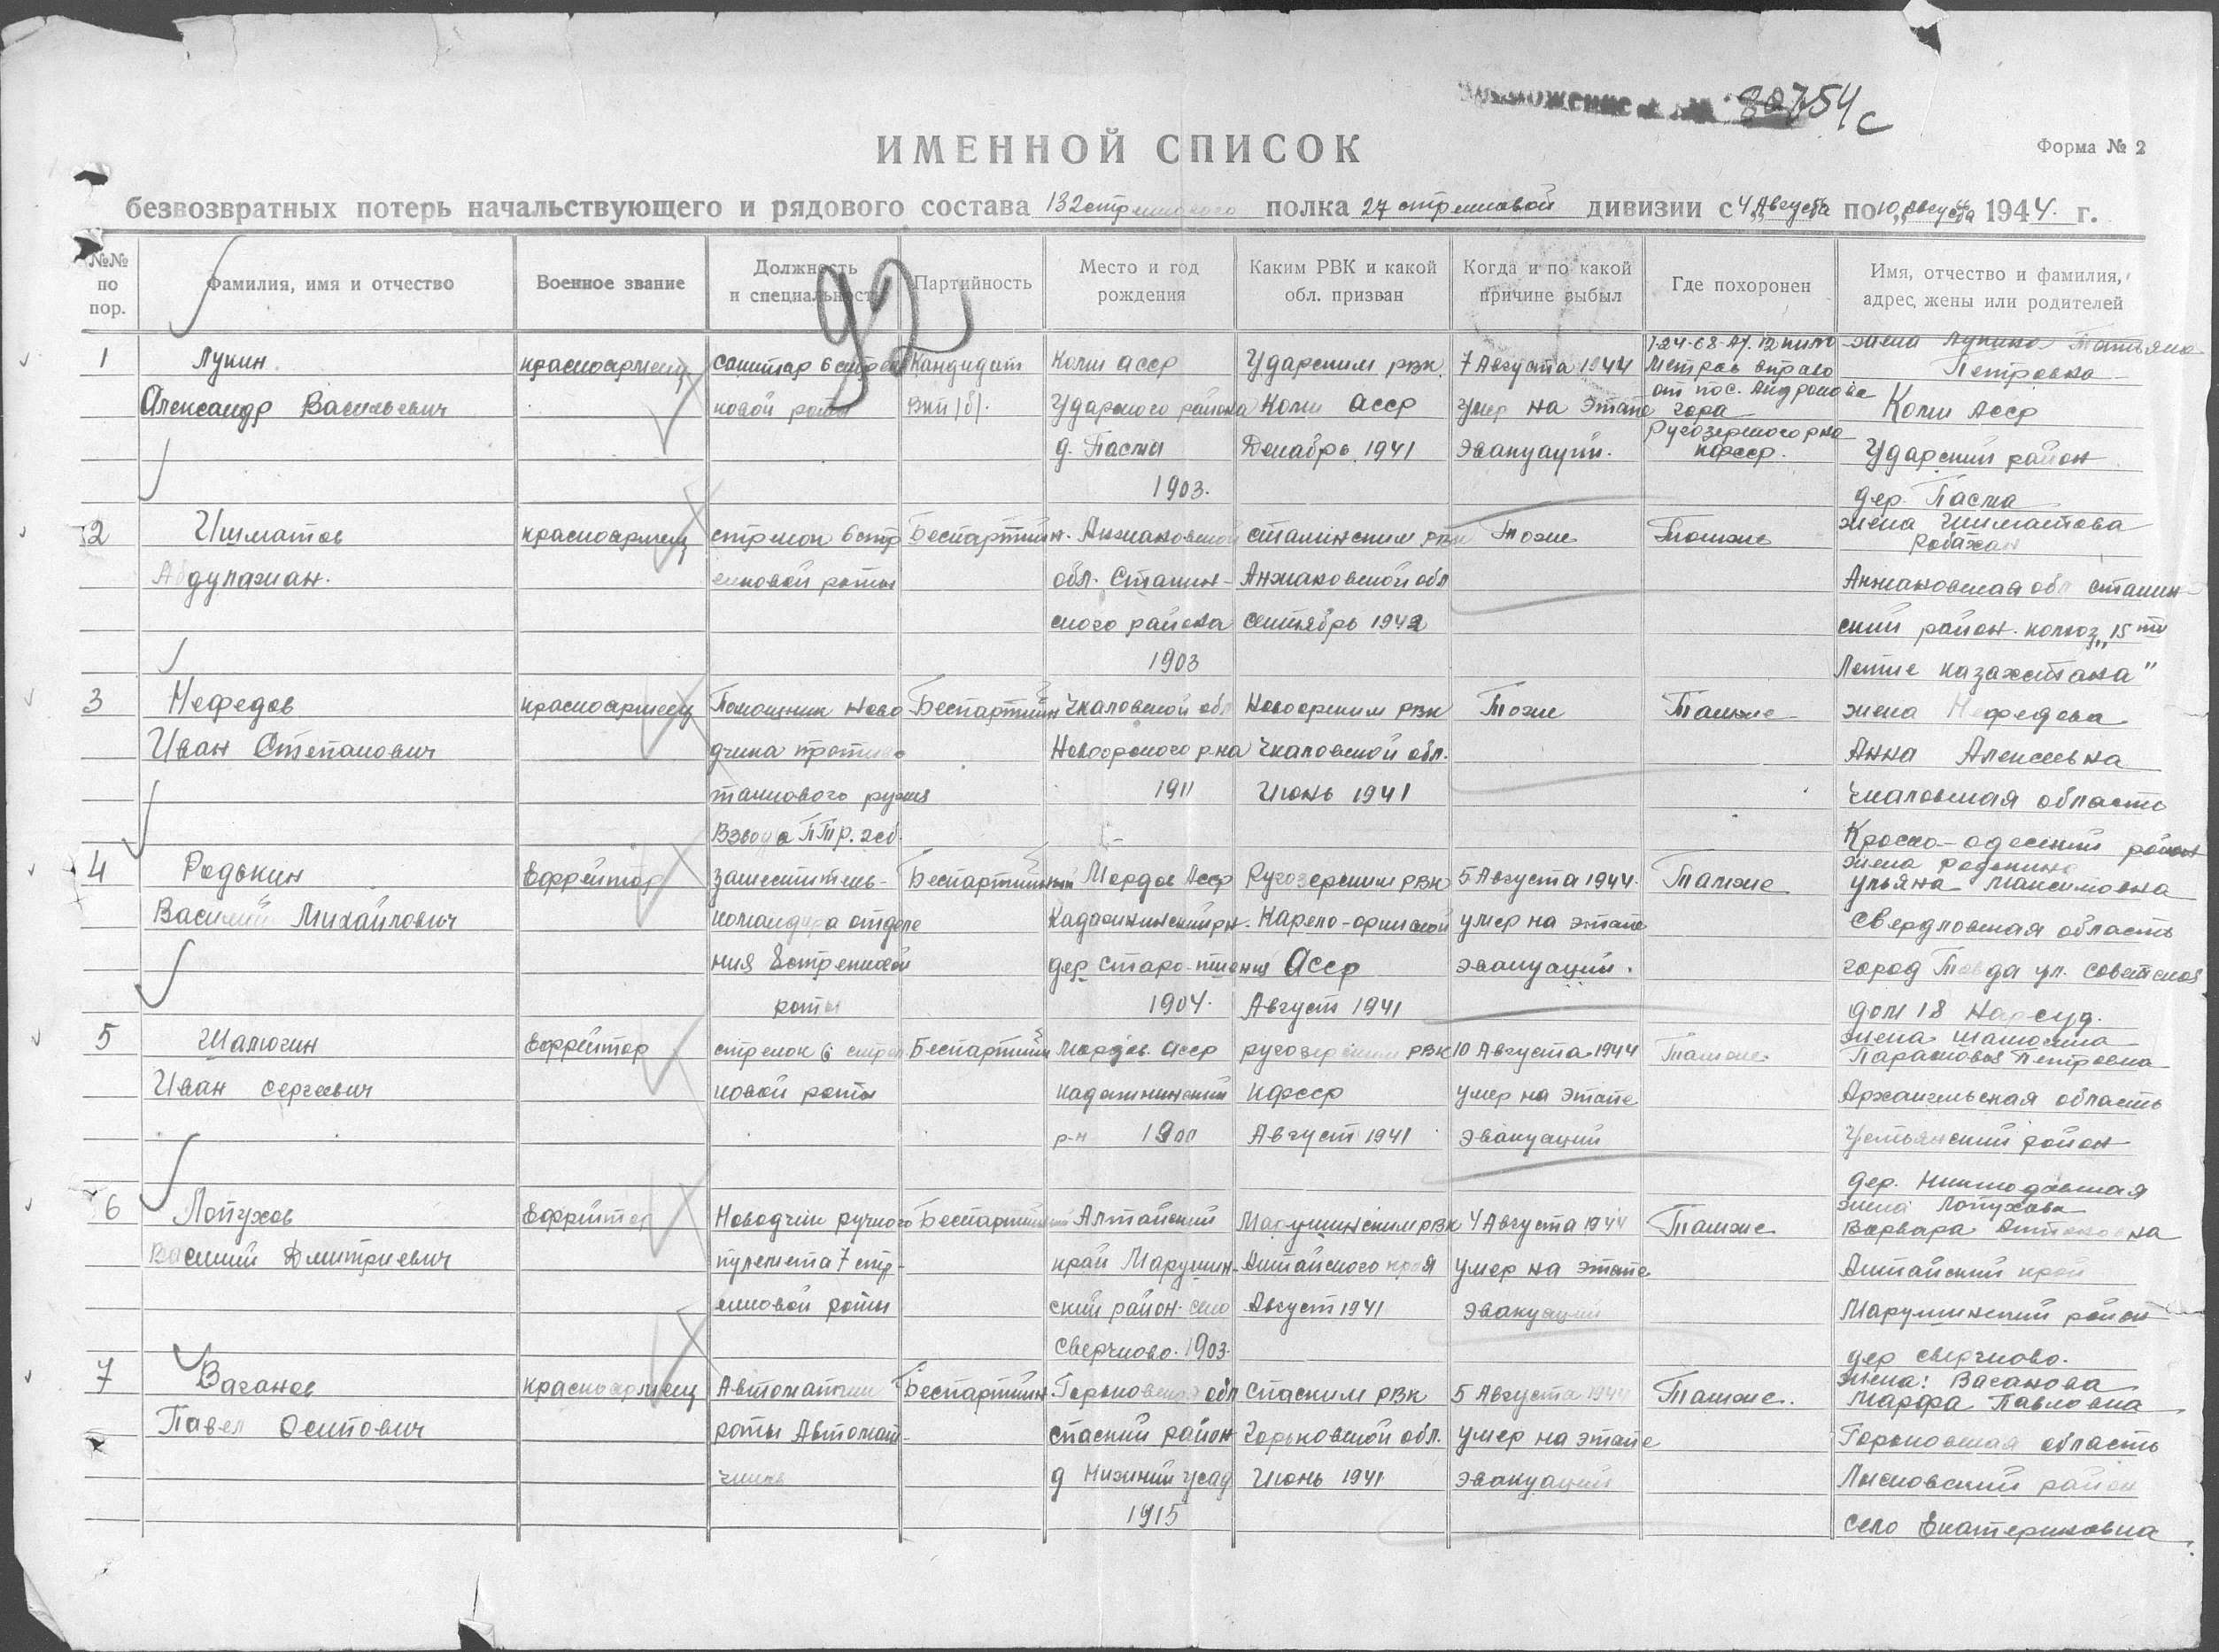 80754с
ИМЕННОЙ СПИСОК
Форма № 2
безвозвратных потерь начальствующего и рядового состава 132 стрелкового полка 27 стрелковой дивизии с 4 „Августа по 10 „Августа 1944. г.
92
№№ по пор.
Фамилия, имя и отчество
Военное звание
Должность и специальность
Партийность
Место и год рождения
Каким РВК и какой обл. призван
Когда и по какой причине выбыл
Где похоронен
Имя, отчество и фамилия, адрес, жены или родителей
1
Лукин
Александр Васильевич
красноармеец
Санитар 6 стрел
ковой роты
Кандидат
ВКП/б/.
Коми асср
Удорского района
д. Пасма
1903.
Удорским рвк
Коми асср
Декабрь 1941
7 Августа 1944
Умер на этапе
эвакуаций.
метров вправо
от пос. Андронова
гора
Ругозерского рна
кфсср.
жена Лукина Татьяна
Петровна
Коми Асср
Удорский район
дер. Пасма
2
Ишматов
Абдулажан.
красноармеец
стрелок 6 стр
елковой роты
Беспартийн.
обл. Сталин-
ского района
1903
сталинским рвк
сентябрь 1942
Тоже
Также
жена Ишматова
обл сталин-
ский район. колхоз „15 ти
Летие казахстана"
3
Нефедов
Иван Степанович
красноармеец
Помощник наво
дчика противо
танкового ружья
Взвода ПТР. 2сб.
Беспартийн
Чкаловской обл
Новоорского рна
1911
Новоорским РВК
Чкаловской обл.
Июнь 1941
Тоже
Также
жена Нефедова
Анна Алексеевна
Чкаловская область
район
4
Редькин
Василий Михайлович
Ефрейтор
заместитель-
командира отделе
ния стрелковой
роты
Беспартийный
Мордов Асср
1904.
Ругозерским РВК
Карело-финской
Асср
Август 1941
5 Августа 1944.
умер на этапе
эвакуаций.
Также
жена Редькина
Ульяна Максимовна
Свердловская область
город Тавда ул. Советская
дом 18 Нарсуд.
5
Шалюгин
Иван Сергеевич
Ефрейтор
стрелок 6 стрел
ковой роты
Беспартийн
Мордов. асср
р-н 1900
ругозерским РВК
кфсср
Август 1941
10 Августа 1944
умер на этапе
эвакуаций
Также
жена Шалюгина
Петровна
Архангельская область
Устьянский район
дер.
6
Лопухов
Василий Дмитриевич
Ефрейтор
Наводчик ручного
пулемета 7 стр-
елковой роты
Беспартийный
Алтайский
край Марушин-
ский район. село
Сверчково. 1903.
Марушинским РВК
Алтайского края
Август 1941
4 Августа 1944
умер на этапе
эвакуаций
Также
жена Лопухова
Варвара
Алтайский край
Марушинский район
дер Сверчково.
7
Ваганов
Павел Осипович
красноармеец
Автоматчик
роты Автомат-
чиков
Беспартийн
Горьковской обл
спаский район
д Нижний усад
1915
Спаским РВК
Горьковской обл.
Июнь 1941
5 Августа 1944
умер на этапе
эвакуаций
Также.
жена: Ваганова
Марфа Павловна
Горьковская область
Лысковский район
село Екатериновка